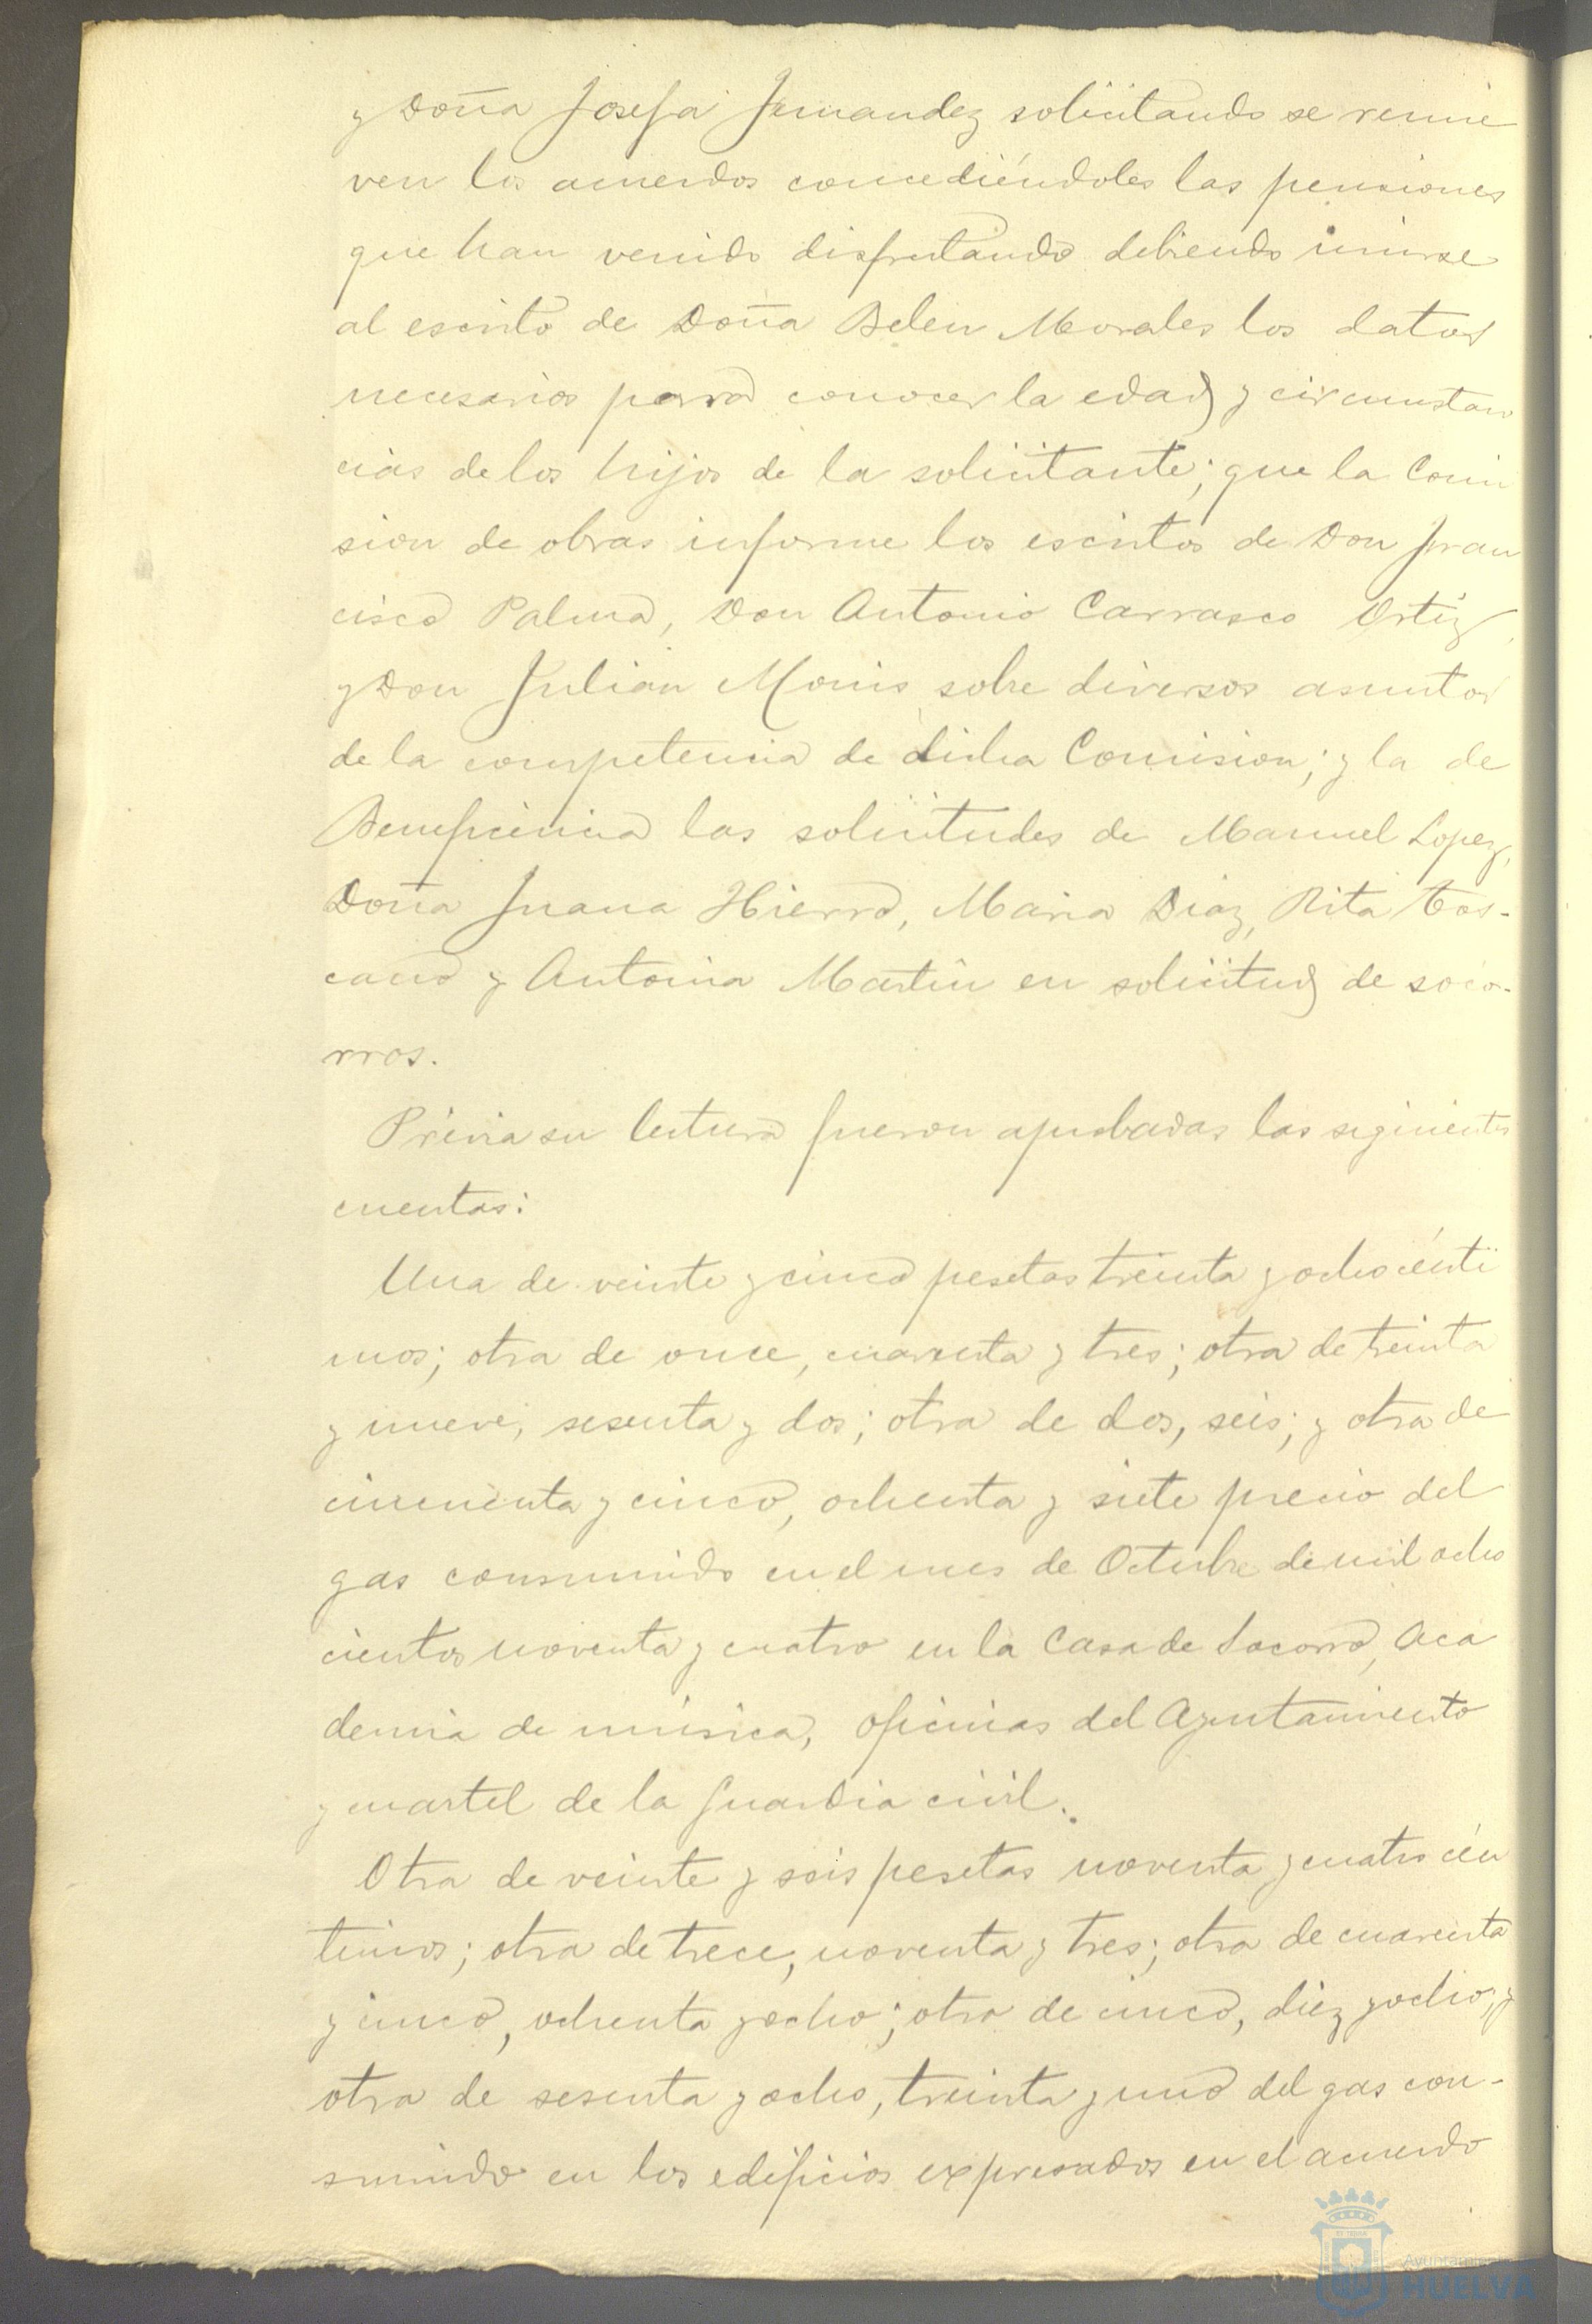 y Doña Josefa Fernandez solicitando se renue
ven los acuerdos concediéndoles las pensiones
que han venido disfrutando debiendo unirse
al escrito de Doña Belen Morales los datos
necesarios para conocer la edad y circunstan
cias de los hijos de la solicitante; que la Comi
sion de obras informe los escritos de Don Fran
cisco Palma, Don Antonio Carrasco Ortiz,
y Don Julian Monis sobre diversos asuntos
de la competencia de dicha Comision; y la de
Beneficencia las solicitudes de Manuel Lopez,
Doña Juana Hierro, Maria Diaz, Rita Tos-
cano y Antonia Martin en solicitud de soco-
rros.
Prévia su lectura fueron aprobadas las siguientes
cuentas:
Una de veinte y cinco pesetas treinta y ocho cénti
mos; otra de once, cuarenta y tres; otra de treinta
y nueve, sesenta y dos; otra de dos, seis; y otra de
cincuenta y cinco, ochenta y siete precio del
gas consumido en el mes de Octubre de mil ocho
cientos noventa y cuatro en la Casa de Socorro, Aca
demia de música, oficinas del Ayuntamiento
y cuartel de la Guardia civil.
Otra de veinte y seis pesetas noventa y cuatro cén
timos; otra de trece, noventa y tres; otra de cuarenta
y cinco, ochenta y ocho; otra de cinco, diez y ocho; y
otra de sesenta y ocho, treinta y uno del gas con-
sumido en los edificios expresados en el acuerdo
Ayuntamiento
HUELVA